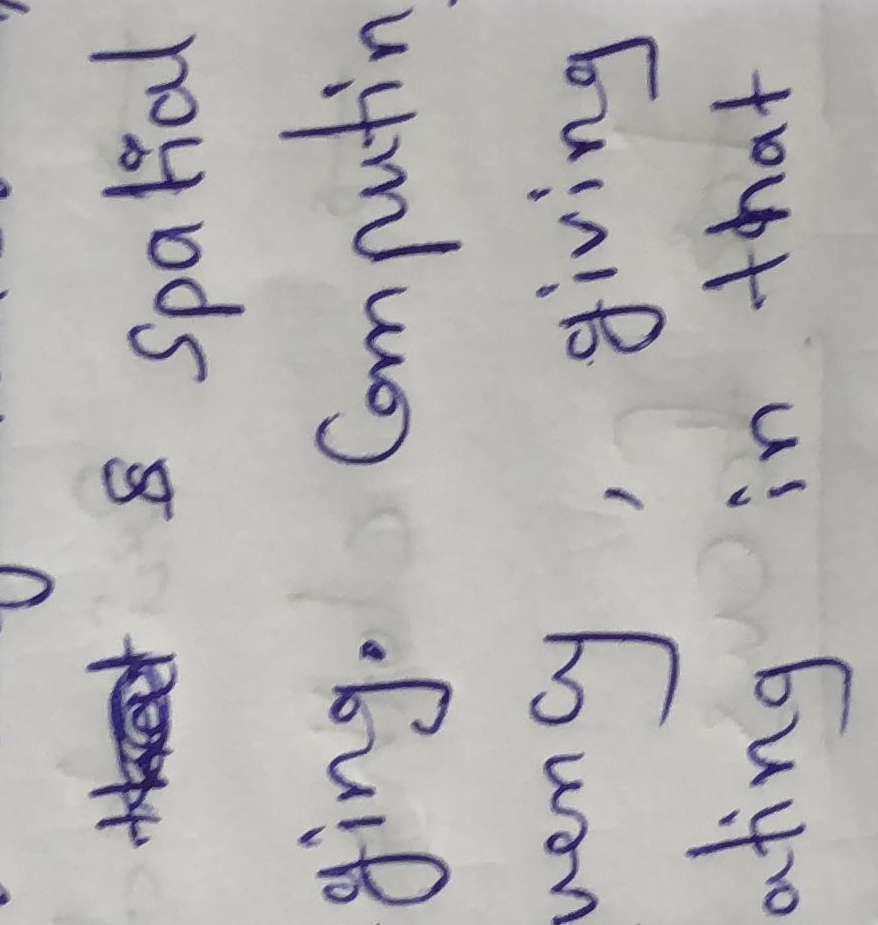 & spatial
ging. Computin
very, giving
ating in that